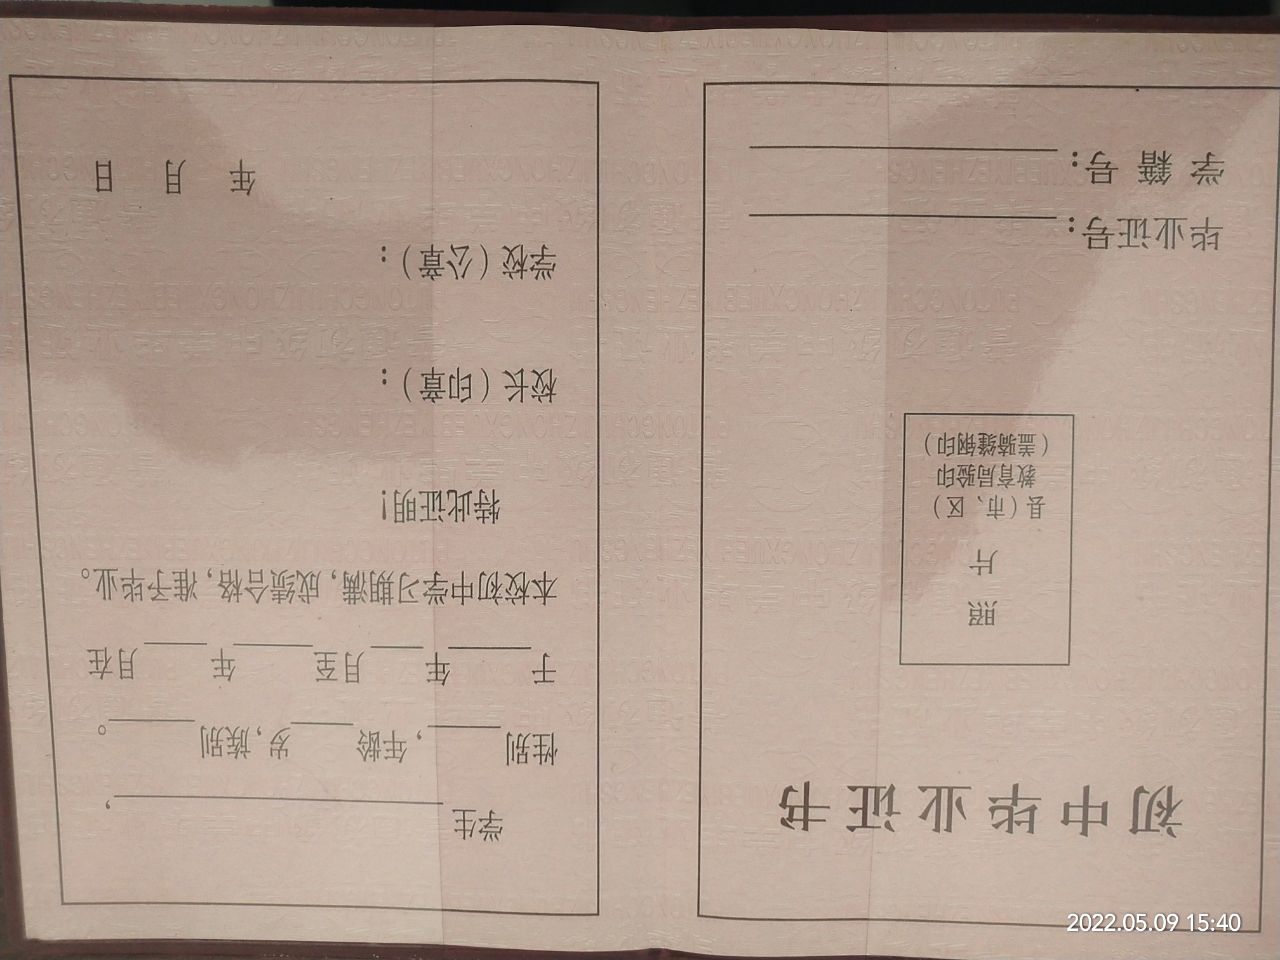 初中毕业证书
照
片
县（市、区）
教育局验印
（盖骑缝钢印）
毕业证号：
学籍号：
学生____________，
性别____，年龄____岁，族别____。
于____年____月至____年____月在
本校初中学习期满，成绩合格，准予毕业。
特此证明！
校长（印章）：
学校（公章）：
年 月 日
2022.05.09 15:40